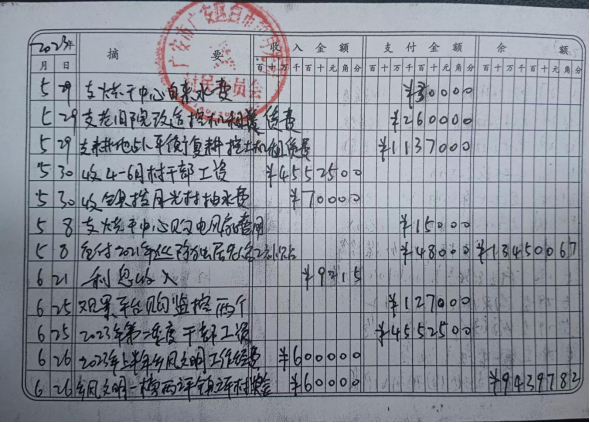 2023年 摘 要 收入金额 支付金额 余额
月 日 百十万千百十元角分 百十万千百十元角分 百十万千百十元角分
5 29 支烘干中心自来水费 ¥30000
5 29 支老旧院改造挖机租赁费 ¥260000
5 29 支耕地占补平衡复耕挖土机租赁费 ¥1137000
5 30 收4-6月村干部工资 ¥4552500
5 30 收镇拨月光村抽水费 ¥70000
5 8 支烘干中心购电风扇费用 ¥15000
5 8 应付2021年 ¥48000 ¥13450067
6 21 利息收入 ¥9215
6 25 观景平台购监控两个 ¥127000
6 25 2023年第二季度干部工资 ¥4552500
6 26 2023年上半年乡风文明工作经费 ¥600000
6 26 乡风文明一榜两评镇评村 ¥60000 ¥9439782
广安市广安区
委员会